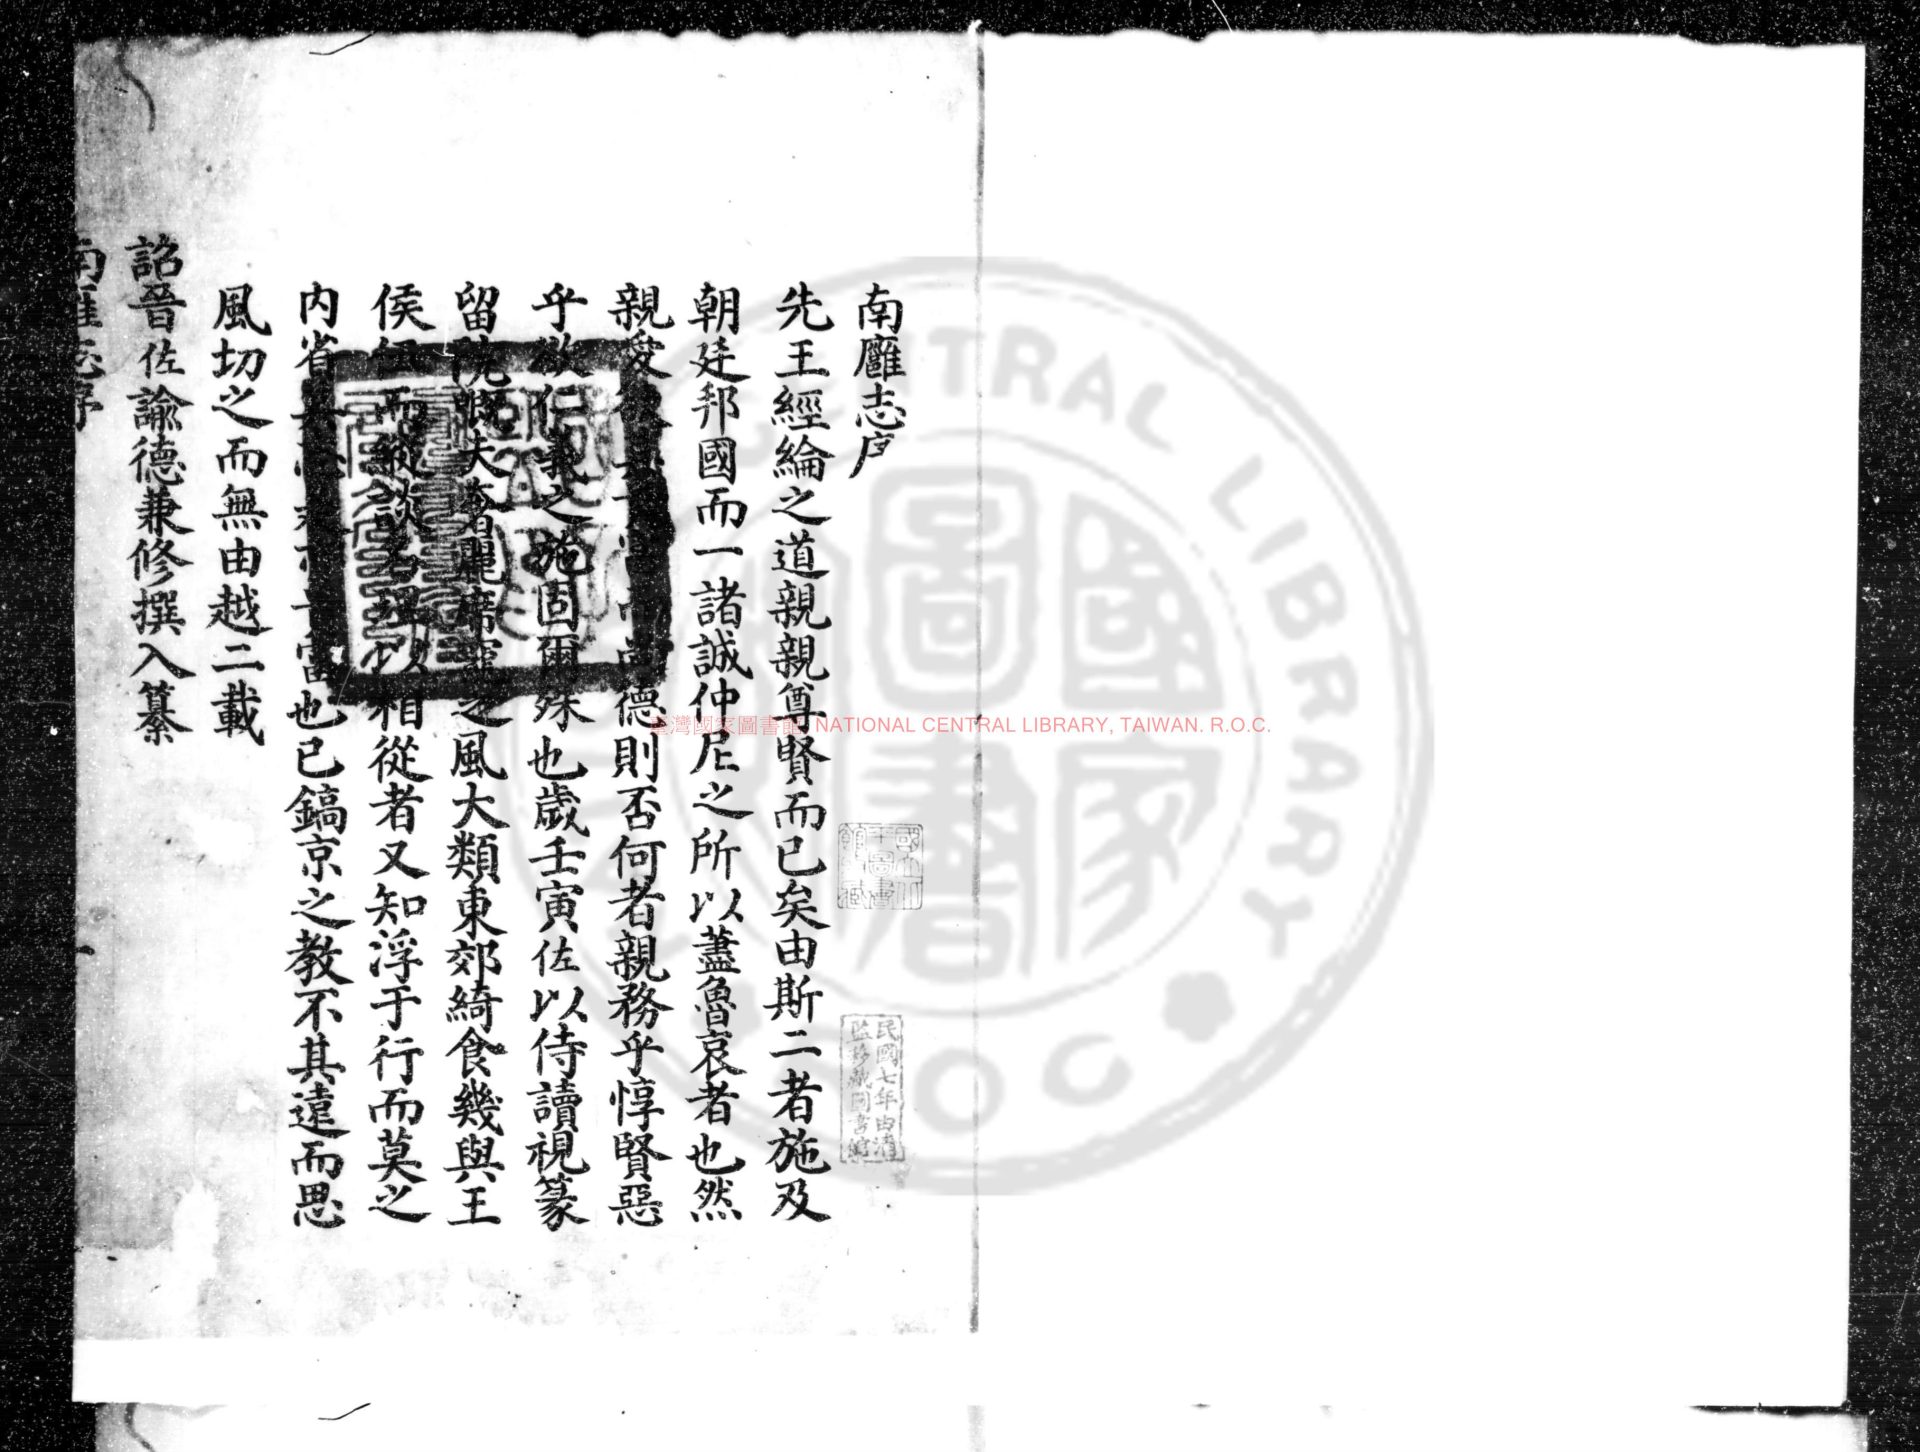 南廱志序
先王經綸之道親親尊賢而已矣由斯二者施及
朝廷邦國而一諸誠仲尼之所以藎魯哀者也然
親愛德則否何者親務乎惇賢惡
乎欲仁義之施固爾殊也歲壬寅佐以侍讀視篆
留院慨夫奢麗席寵之風大類東郊綺食幾與王
侯伍而縱談名理以相從者又知浮于行而莫之
內省也已鎬京之教不其遠而思
風切之而無由越二載
詔晉佐諭德兼修撰入纂
南雍志序
國立北平圖書館藏
民國七年由清
監移藏圖書館
臺灣國家圖書館 NATIONAL CENTRAL LIBRARY, TAIWAN. R.O.C.
國家圖書
CENTRAL LIBRARY